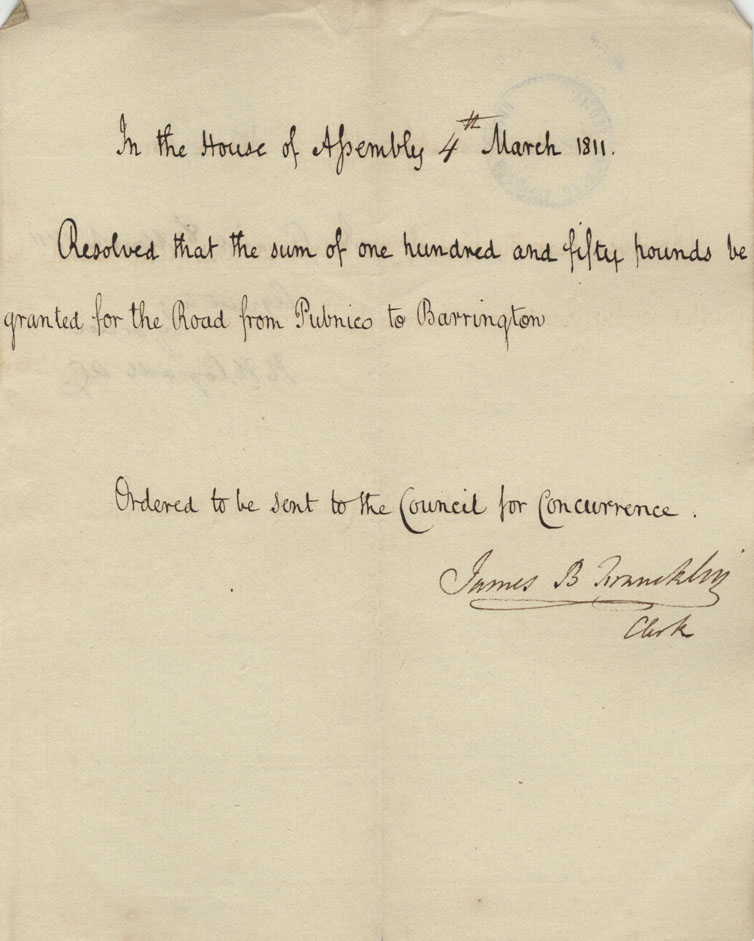 In the House of Assembly 4th March 1811.
Resolved that the sum of one hundred and fifty pounds be
granted for the Road from Pubnico to Barrington
Ordered to be sent to the Council for Concurrence.
James B Francklin
Clerk